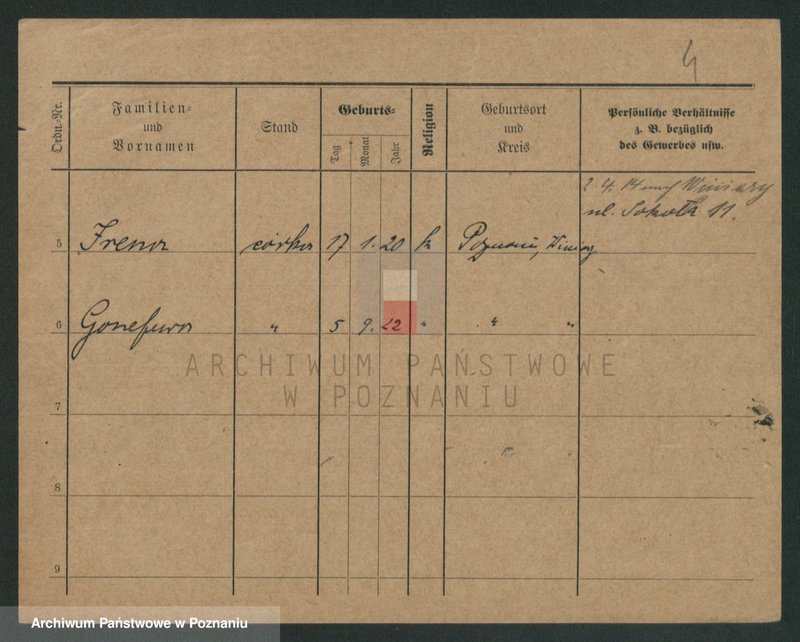 4
Ordn.-Nr.
Familien-
und
Vornamen
Stand
Geburts-
Tag
Monat
Jahr
Religion
Geburtsort
und
Kreis
Persönliche Verhältnisse
z. B. bezüglich
des Gewerbes usw.
2. 4. 14 Winiary
ul. 11.
5 Irena córka 17 1. 20 k Poznań,
6 Genefewa " 5 9. 22 " " "
ARCHIWUM PAŃSTWOWE
W POZNANIU
7
8
9
Archiwum Państwowe w Poznaniu